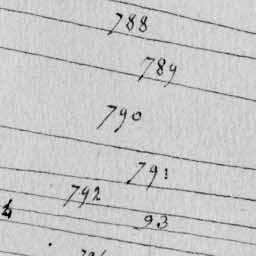 788
789
790
791
792
93